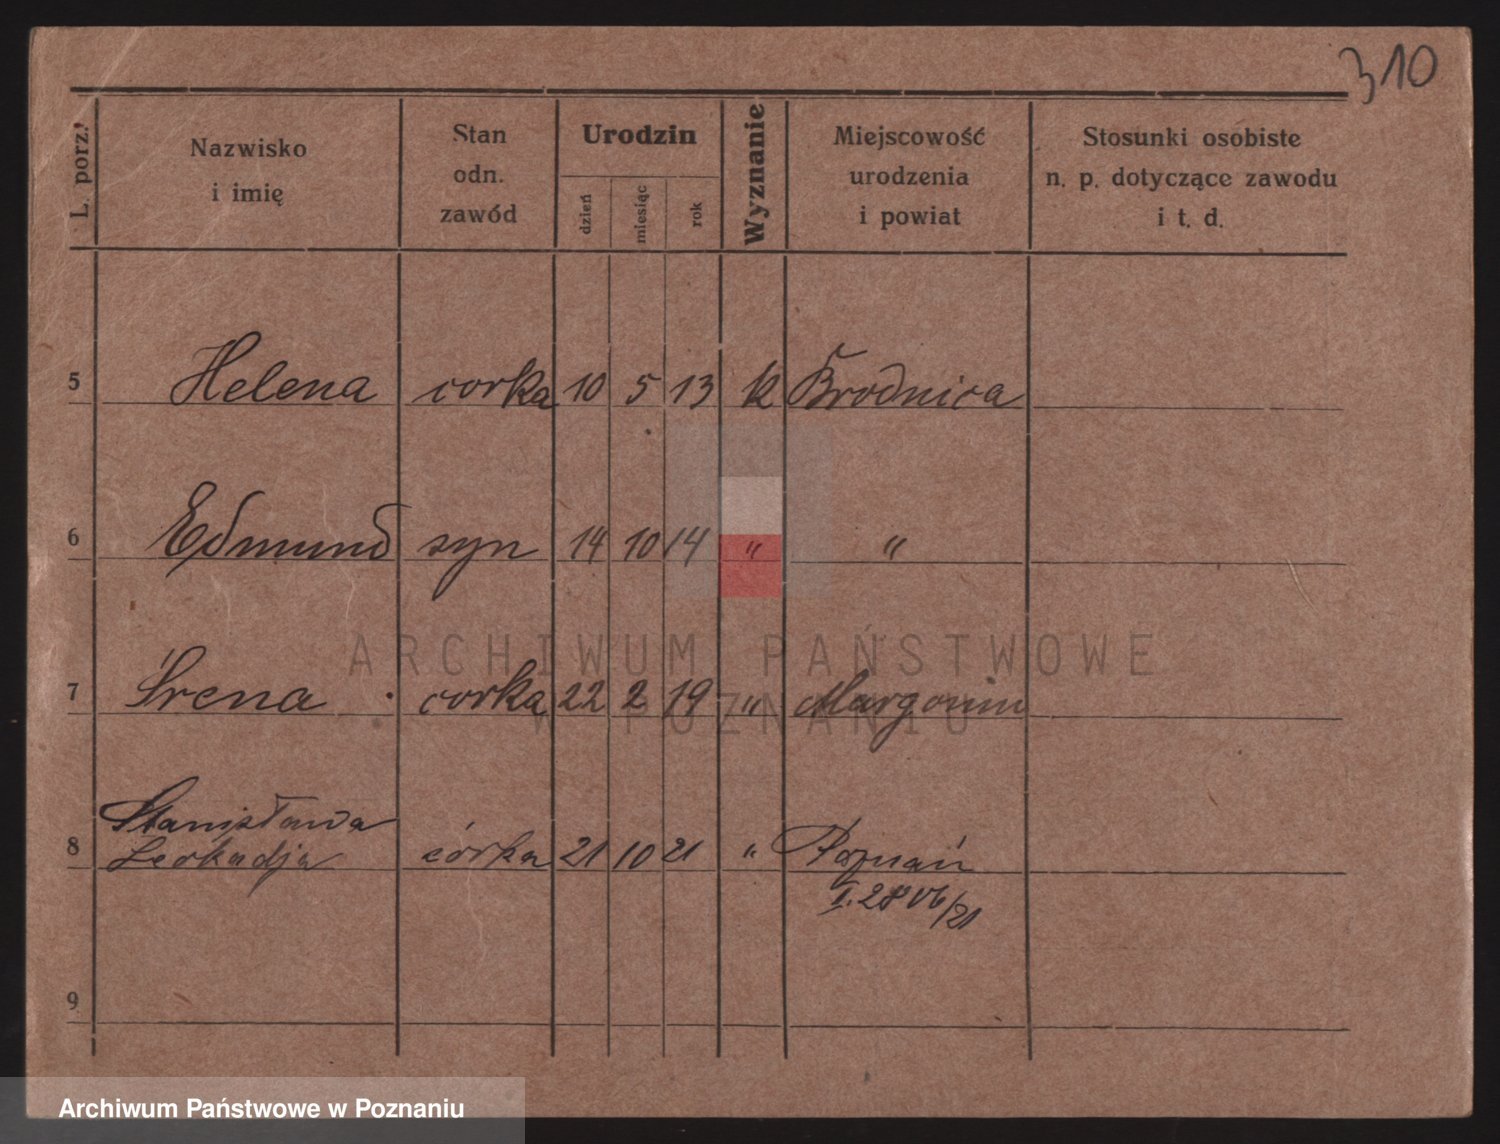 310
L. porz.
Nazwisko
i imię
Stan
odn.
zawód
Urodzin
dzień
miesiąc
rok
Wyznanie
Miejscowość
urodzenia
i powiat
Stosunki osobiste
n. p. dotyczące zawodu
i t. d.
5 Helena corka 10 5 13 k Brodnica
6 Edmund syn 14 10 14 " "
7 Irena corka 22 2 19 " Margonin
Stanisława
8 Leokadja córka 21 10 21 " Poznań
I. 2806/21
9
ARCHIWUM PAŃSTWOWE
W POZNANIU
Archiwum Państwowe w Poznaniu